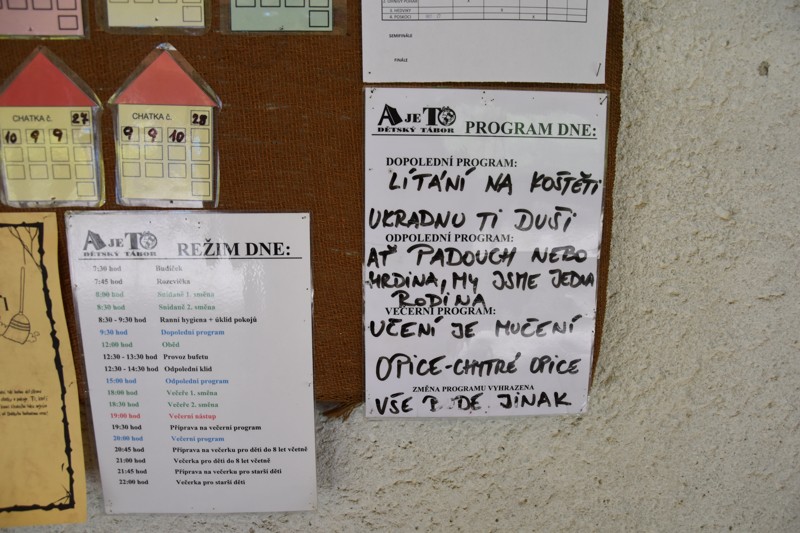 4. HODINY
4. POSNÍCI
SEMIFINÁLE
FINÁLE
CHATKA č. 27
10 9 9
CHATKA č. 28
9 9 10
A JE TO
DĚTSKÝ TÁBOR
REŽIM DNE:
7:30 hod Budíček
7:45 hod Rozcvička
8:00 hod Snídaně 1. směna
8:30 hod Snídaně 2. směna
8:30 - 9:30 hod Ranní hygiena + úklid pokojů
9:30 hod Dopolední program
12:00 hod Oběd
12:30 - 13:30 hod Provoz bufetu
12:30 - 14:30 hod Odpolední klid
15:00 hod Odpolední program
18:00 hod Večeře 1. směna
18:30 hod Večeře 2. směna
19:00 hod Večerní nástup
19:30 hod Příprava na večerní program
20:00 hod Večerní program
20:45 hod Příprava na večerku pro děti do 8 let včetně
21:00 hod Večerka pro děti do 8 let včetně
21:45 hod Příprava na večerku pro starší děti
22:00 hod Večerka pro starší děti
A JE TO
DĚTSKÝ TÁBOR
PROGRAM DNE:
DOPOLEDNÍ PROGRAM:
LÍTÁNÍ NA KOŠTĚTI
UKRADNU TI DUŠI
ODPOLEDNÍ PROGRAM:
AŤ PADOUCH NEBO
HRDINA, MY JSME JEDNA
RODINA
VEČERNÍ PROGRAM:
UČENÍ JE MUČENÍ
OPICE-CHYTRÉ OPICE
ZMĚNA PROGRAMU VYHRAZENA
VŠE JINAK